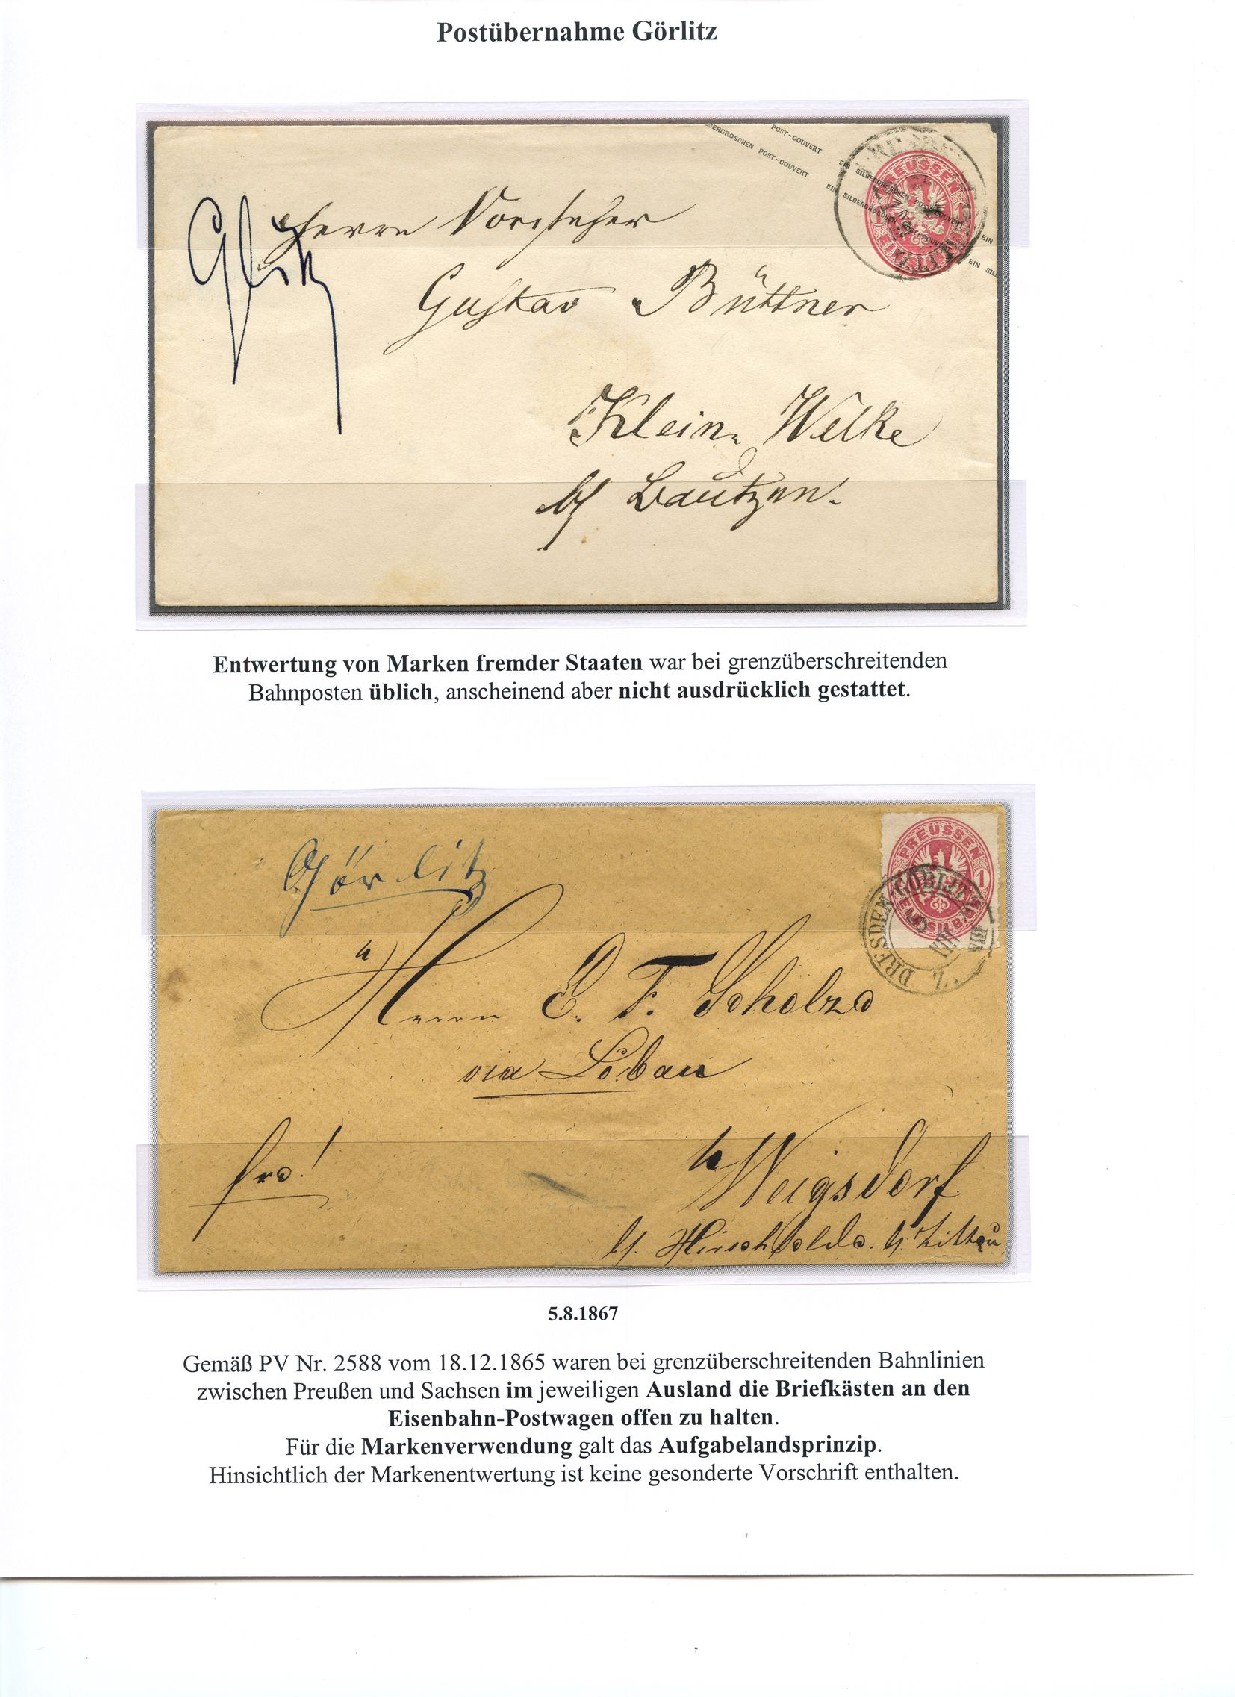 Postübernahme Görlitz
POST-COUVERT
POST-COUVERT
PREUSSEN
Herrn Vorsteher
Gustav Büttner
Klein Welke
b/ Bautzen.
Entwertung von Marken fremder Staaten war bei grenzüberschreitenden
Bahnposten üblich, anscheinend aber nicht ausdrücklich gestattet.
Görlitz
PREUSSEN
1
DRESDEN GÖRLITZ
5 VIII
Z.
Herrn C. F. Scholze
via Löbau
fro!
Weigsdorf
b/. Hirschfelde. b/ Zittau
5.8.1867
Gemäß PV Nr. 2588 vom 18.12.1865 waren bei grenzüberschreitenden Bahnlinien
zwischen Preußen und Sachsen im jeweiligen Ausland die Briefkästen an den
Eisenbahn-Postwagen offen zu halten.
Für die Markenverwendung galt das Aufgabelandsprinzip.
Hinsichtlich der Markenentwertung ist keine gesonderte Vorschrift enthalten.